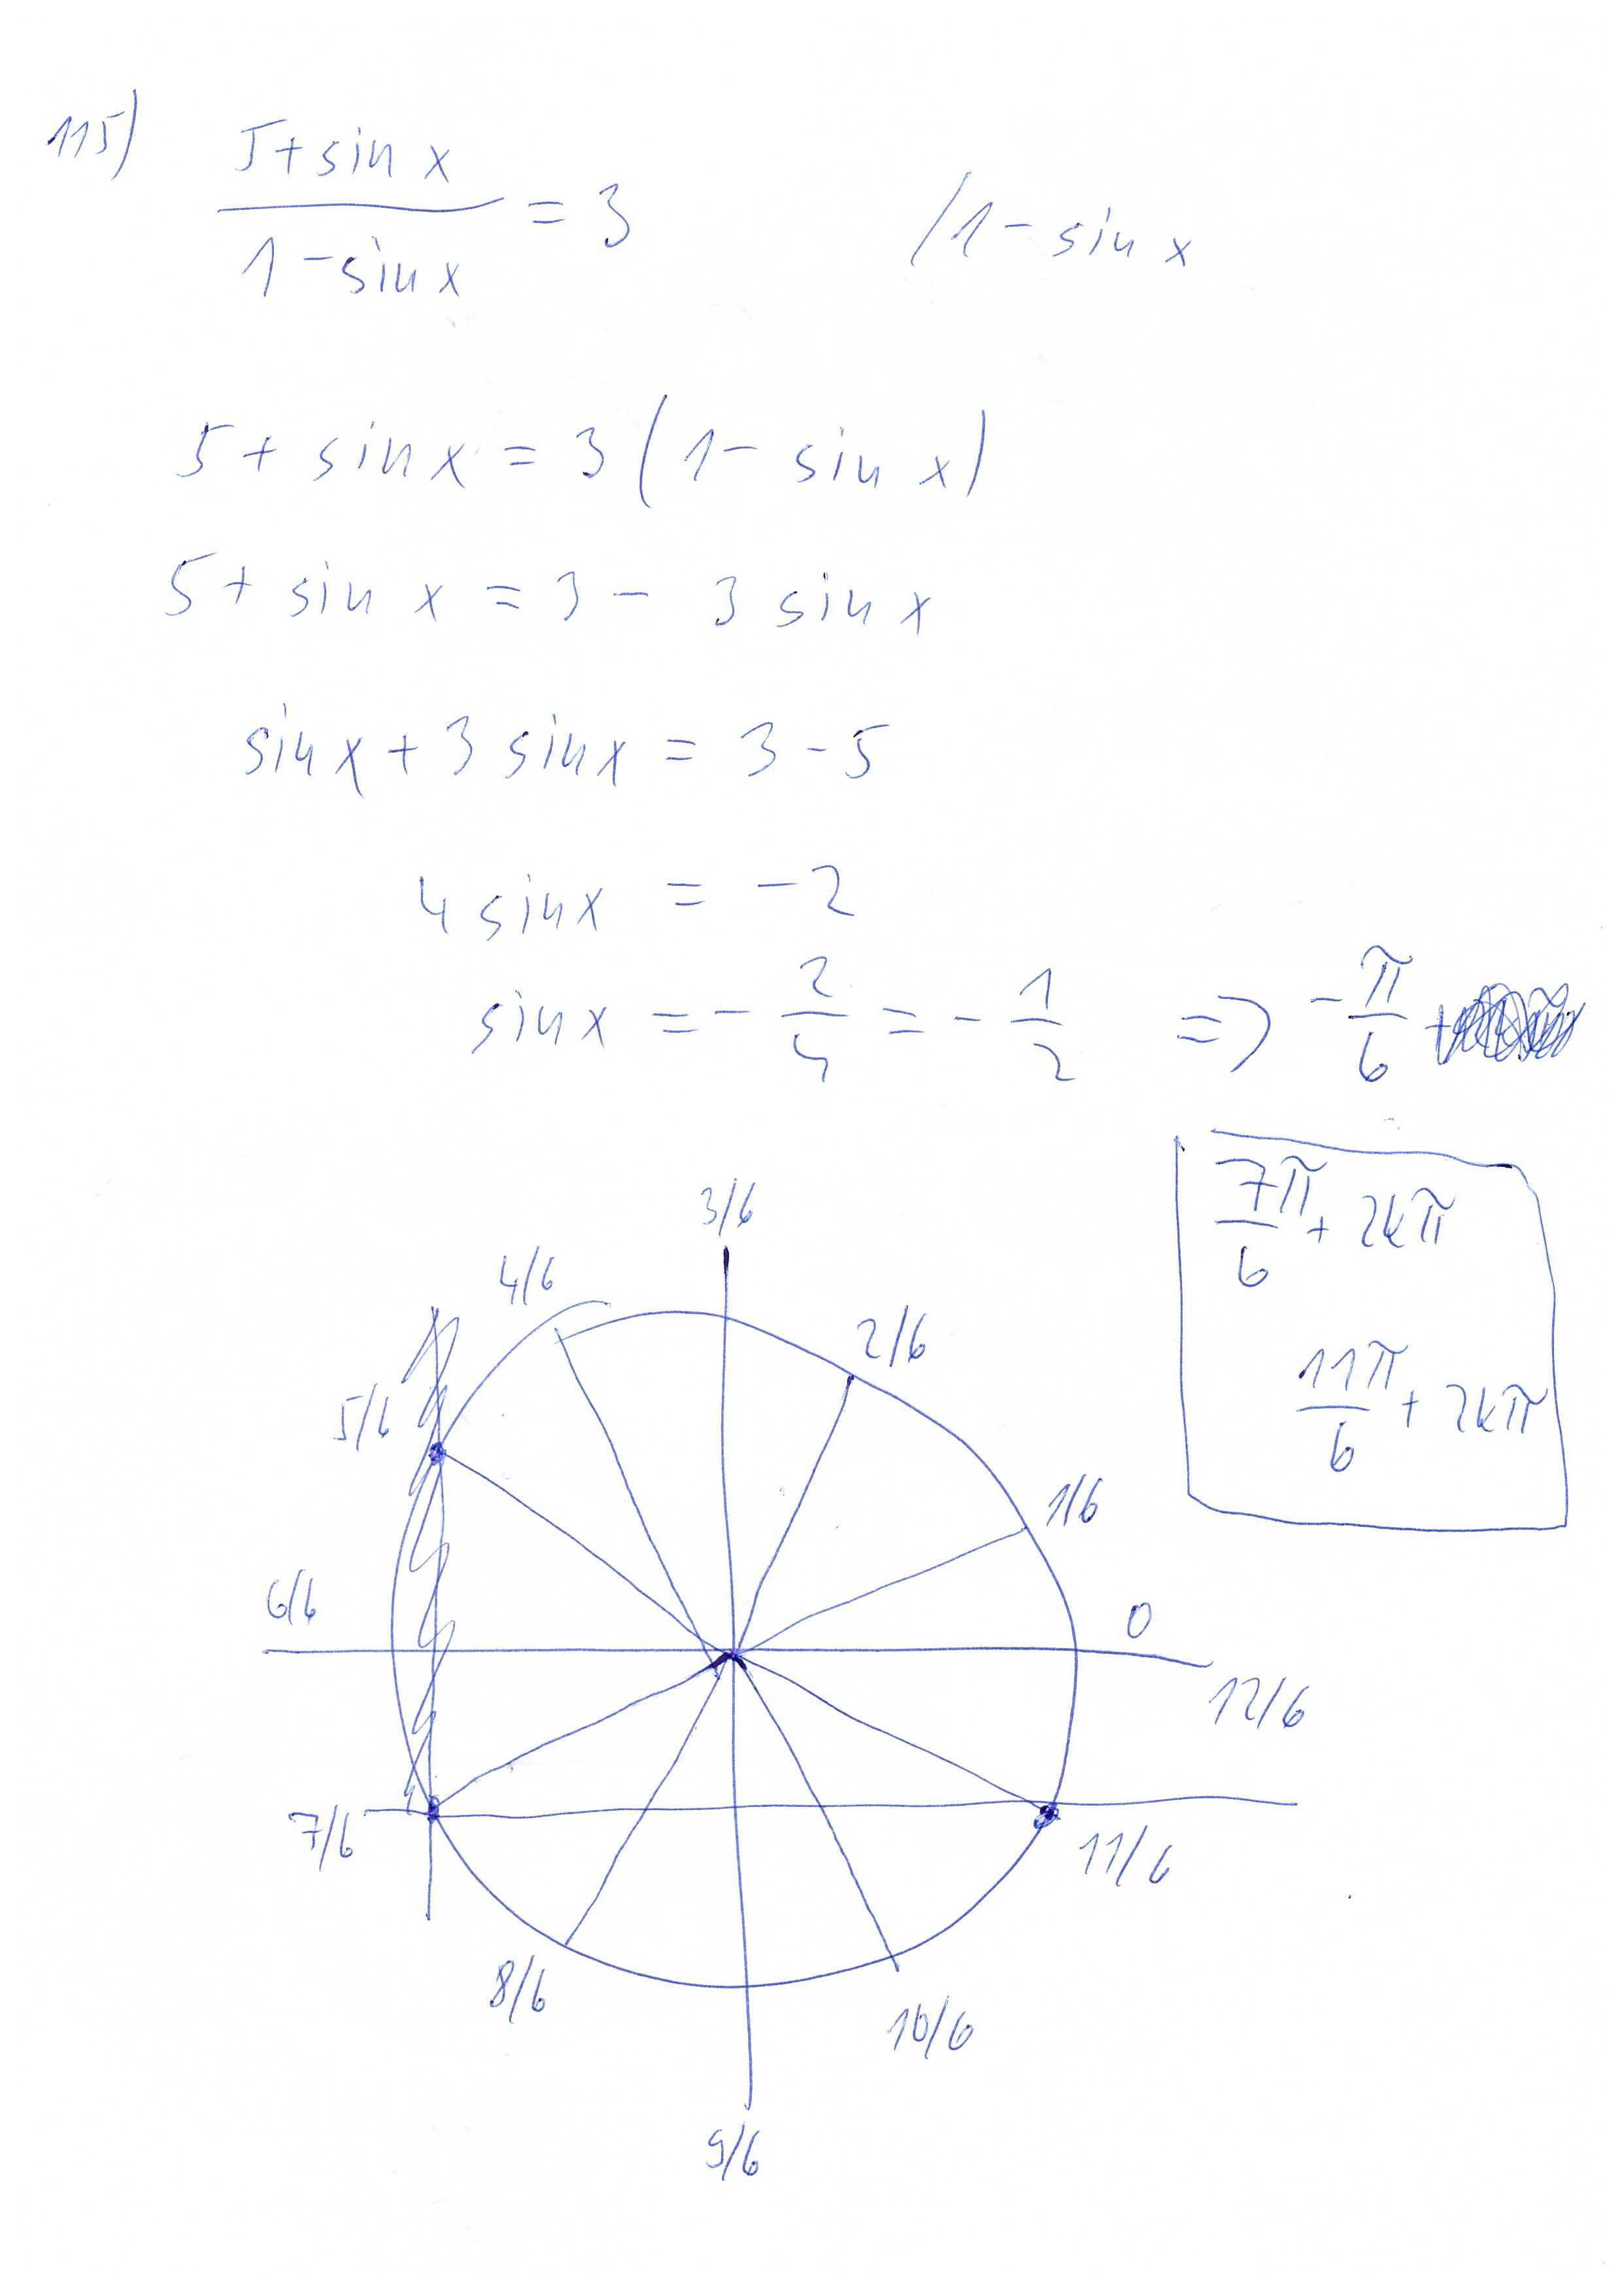 115)
5+sin x
1-sin x
= 3
/1- sin x
5+ sin x = 3 (1- sin x)
5+ sin x = 3 - 3 sin x
sin x + 3 sin x = 3-5
4 sin x = -2
sin x = - 2/4 = - 1/2 => - π/6 +
7π/6 + 2kπ
11π/6 + 2kπ
3/6
4/6
2/6
5/6
1/6
6/6
0
12/6
7/6
11/6
8/6
10/6
9/6